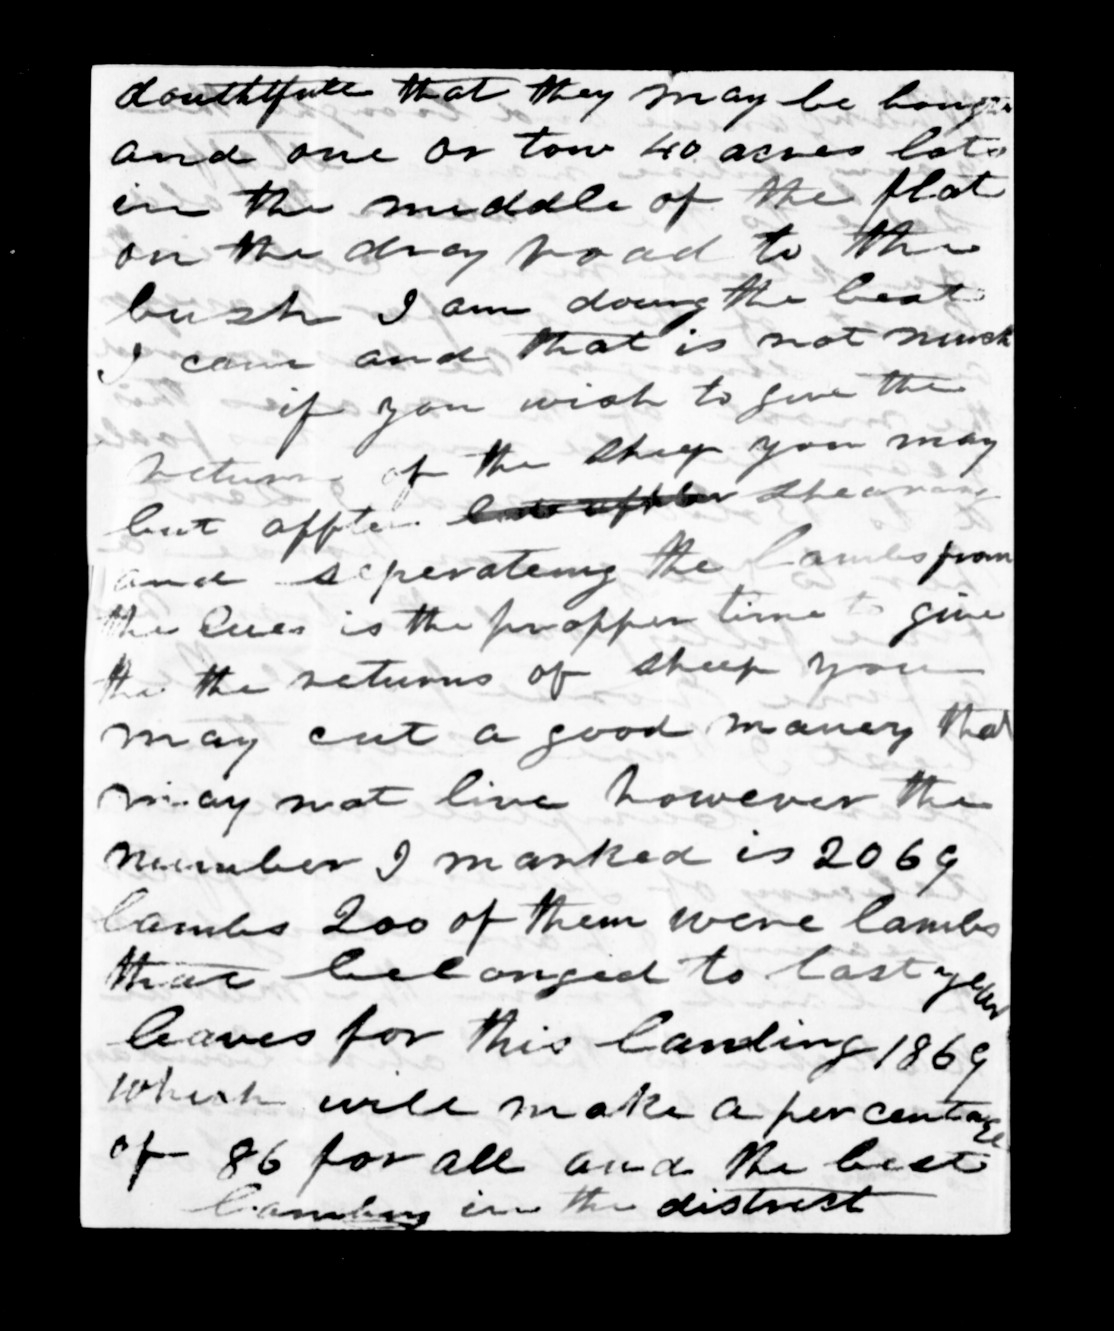 douthtfull that they may be bough
and one or tow 40 acres lots
in the meddle of the flat
on the dray road to the
bush I am doung the best
I can and that is not much
if you wish to give the
returns of the sheep you may
but affter shearing
and seperateing the lambs from
the Eues is the propper time to give
the the returns of sheep you
may cut a good maney that
may not live however the
number I marked is 2069
lambs 200 of them were lambs
that belonged to last year
leaves for this lambing 1869
which will make a percentage
of 86 for all and the best
lambing in the distrest